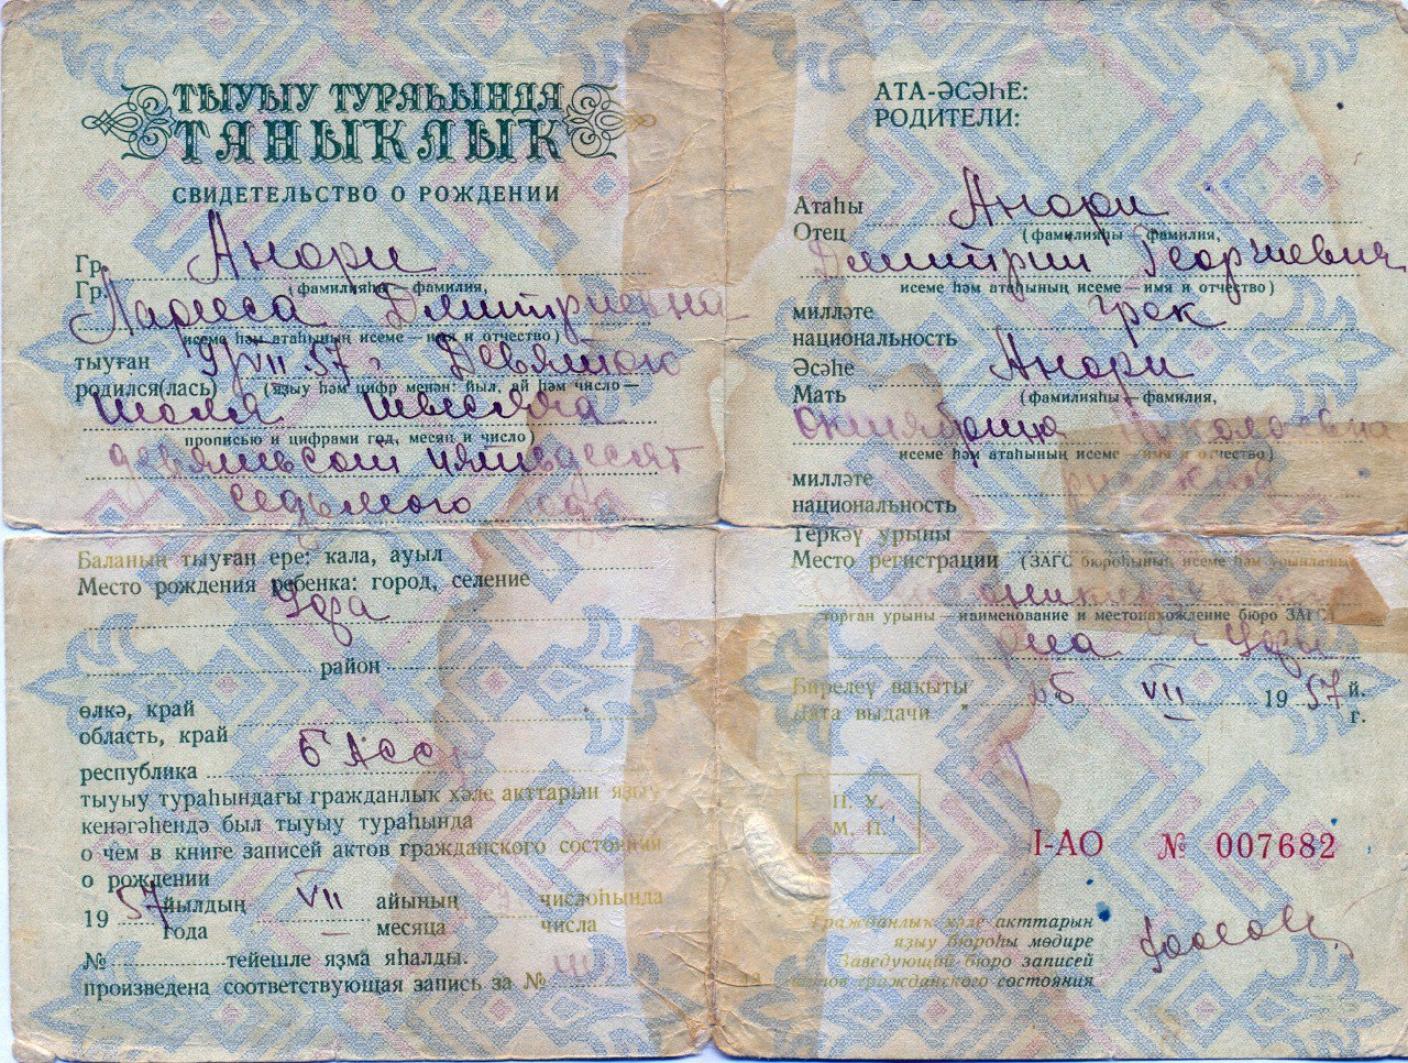 ТЫУЫУ ТУРАҺЫНДА
ТАНЫКЛЫК
СВИДЕТЕЛЬСТВО О РОЖДЕНИИ
Гр. Анори
Гр. (фамилияһы — фамилия,
Лариса Дмитриевна
исеме һәм атаһының исеме — имя и отчество)
тыуған 9/VII 57 г Девятого
родился(лась) (языу һәм цифр менән: йыл, ай һәм число —
июля тысяча
прописью и цифрами год, месяц и число)
девятьсот пятьдесят
седьмого года
Баланың тыуған ере: кала, ауыл
Место рождения ребенка: город, селение
Уфа
район
өлкә, край
область, край
республика БАССР
тыуыу тураһындағы гражданлык хәле акттарын яҙыу
кенәгәһендә был тыуыу тураһында
о чем в книге записей актов гражданского состояния
о рождении
19 57 йылдың VII айының числоһында
года месяца числа
№ тейешле яҙма яһалды.
произведена соответствующая запись за №
АТА-ӘСӘҺЕ:
РОДИТЕЛИ:
Атаһы Анори
Отец (фамилияһы — фамилия,
Дмитрий Георгиевич
исеме һәм атаһының исеме — имя и отчество)
милләте грек
национальность
Әсәһе Анори
Мать (фамилияһы — фамилия,
Октябрина Николаевна
исеме һәм атаһының исеме — имя и отчество)
милләте
национальность
Теркәү урыны
Место регистрации (ЗАГС бюроһының исеме һәм урынлашкан
торган урыны — наименование и местонахождение бюро ЗАГС)
Уфы
Бирелеү вакыты VII 19 57 й.
Дата выдачи г.
П. У.
М. П.
I-АО № 007682
Гражданлык хәле акттарын
языу бюроһы мөдире
Заведующий бюро записей
актов гражданского состояния